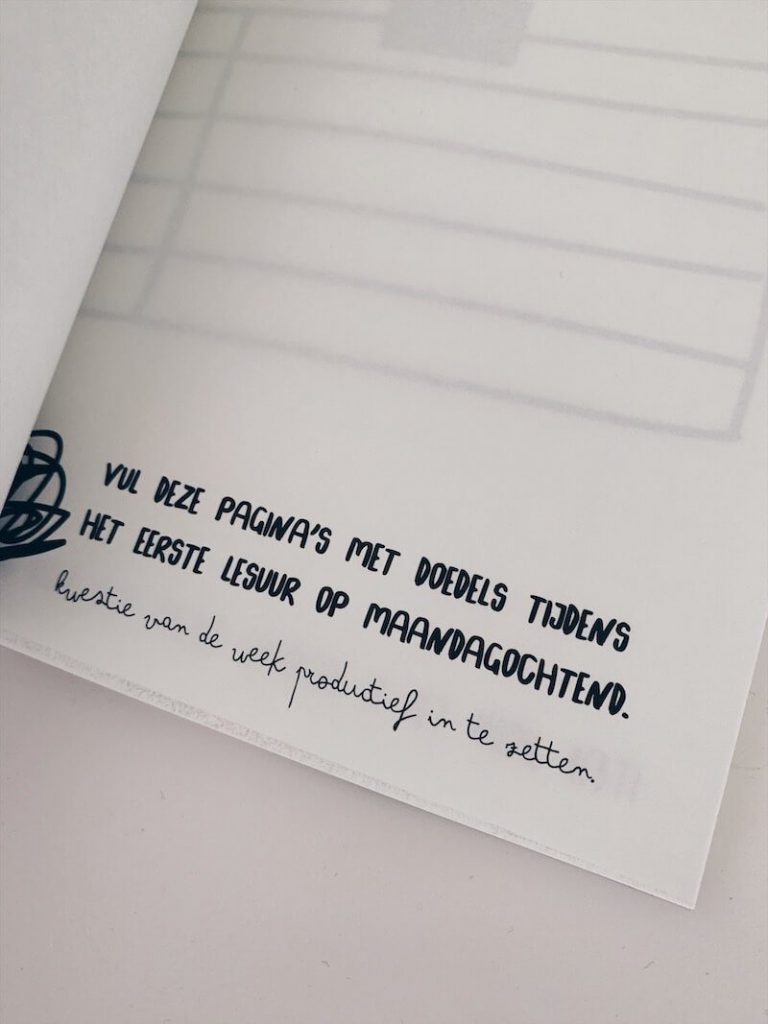 VUL DEZE PAGINA'S MET DOEDELS TIJDENS
HET EERSTE LESUUR OP MAANDAGOCHTEND.
kwestie van de week productief in te zetten.